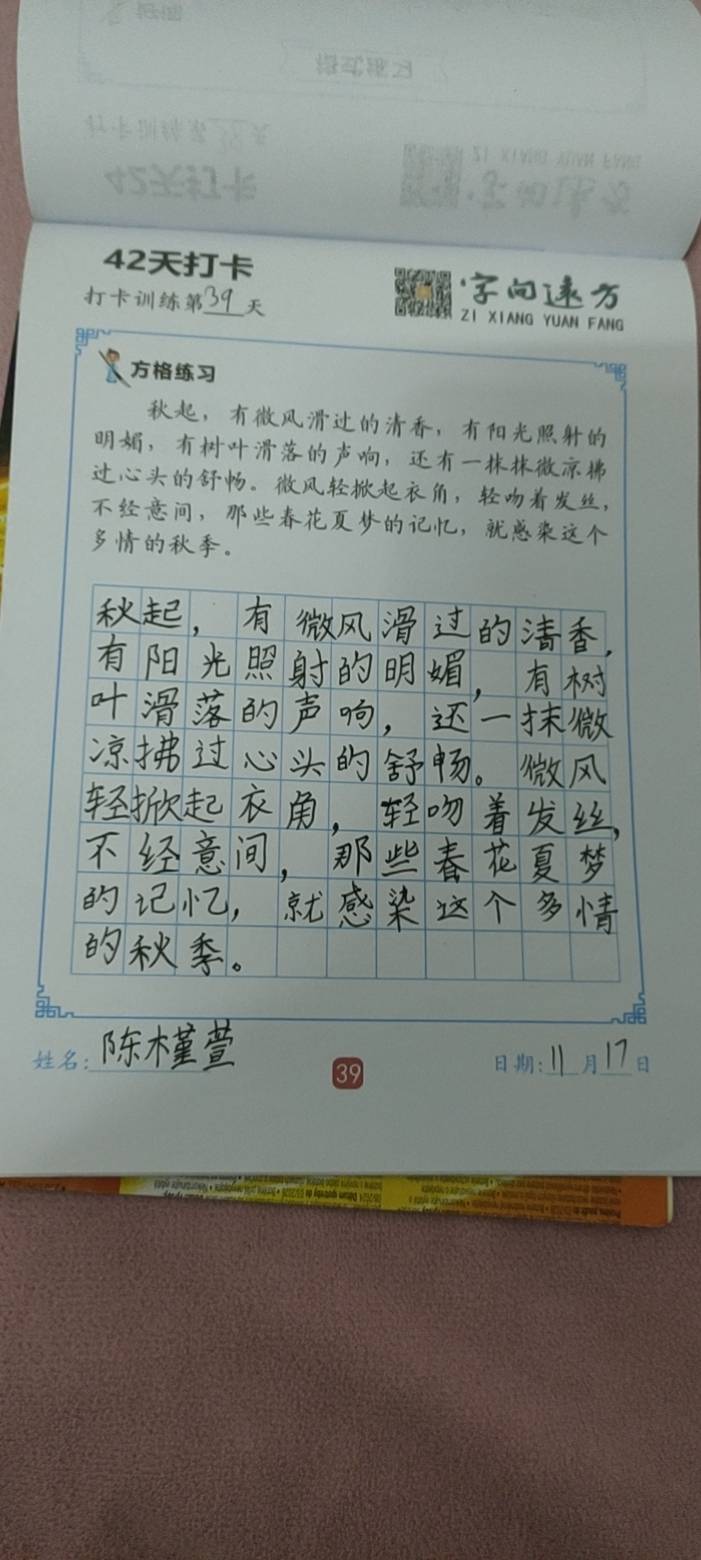 42天打卡
打卡训练第39天
字向远方
ZI XIANG YUAN FANG
方格练习
秋起，有微风滑过的清香，有阳光照射的
明媚，有树叶滑落的声响，还有一抹抹微凉拂
过心头的舒畅。微风轻掀起衣角，轻吻着发丝，
不经意间，那些春花夏梦的记忆，就感染这个
多情的秋季。
秋起，有微风滑过的清香，
有阳光照射的明媚，有树
叶滑落的声响，还一抹微
凉拂过心头的舒畅。微风
轻掀起衣角，轻吻着发丝，
不经意间，那些春花夏梦
的记忆，就感染这个多情
的秋季。
姓名：陈木槿萱
39
日期：11月17日